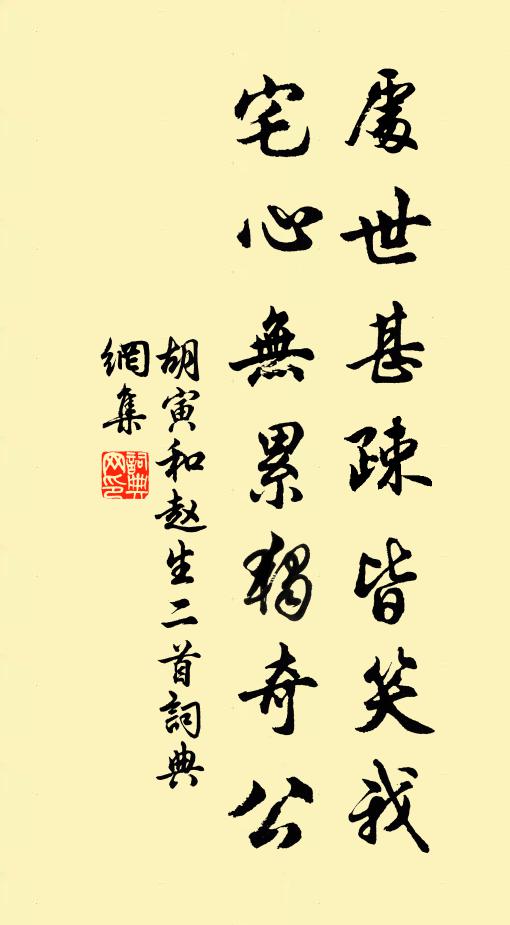 處世甚疎皆笑我
宅心無累獨奇公
胡寅和赵生二首詞典
網集
詞典
网印